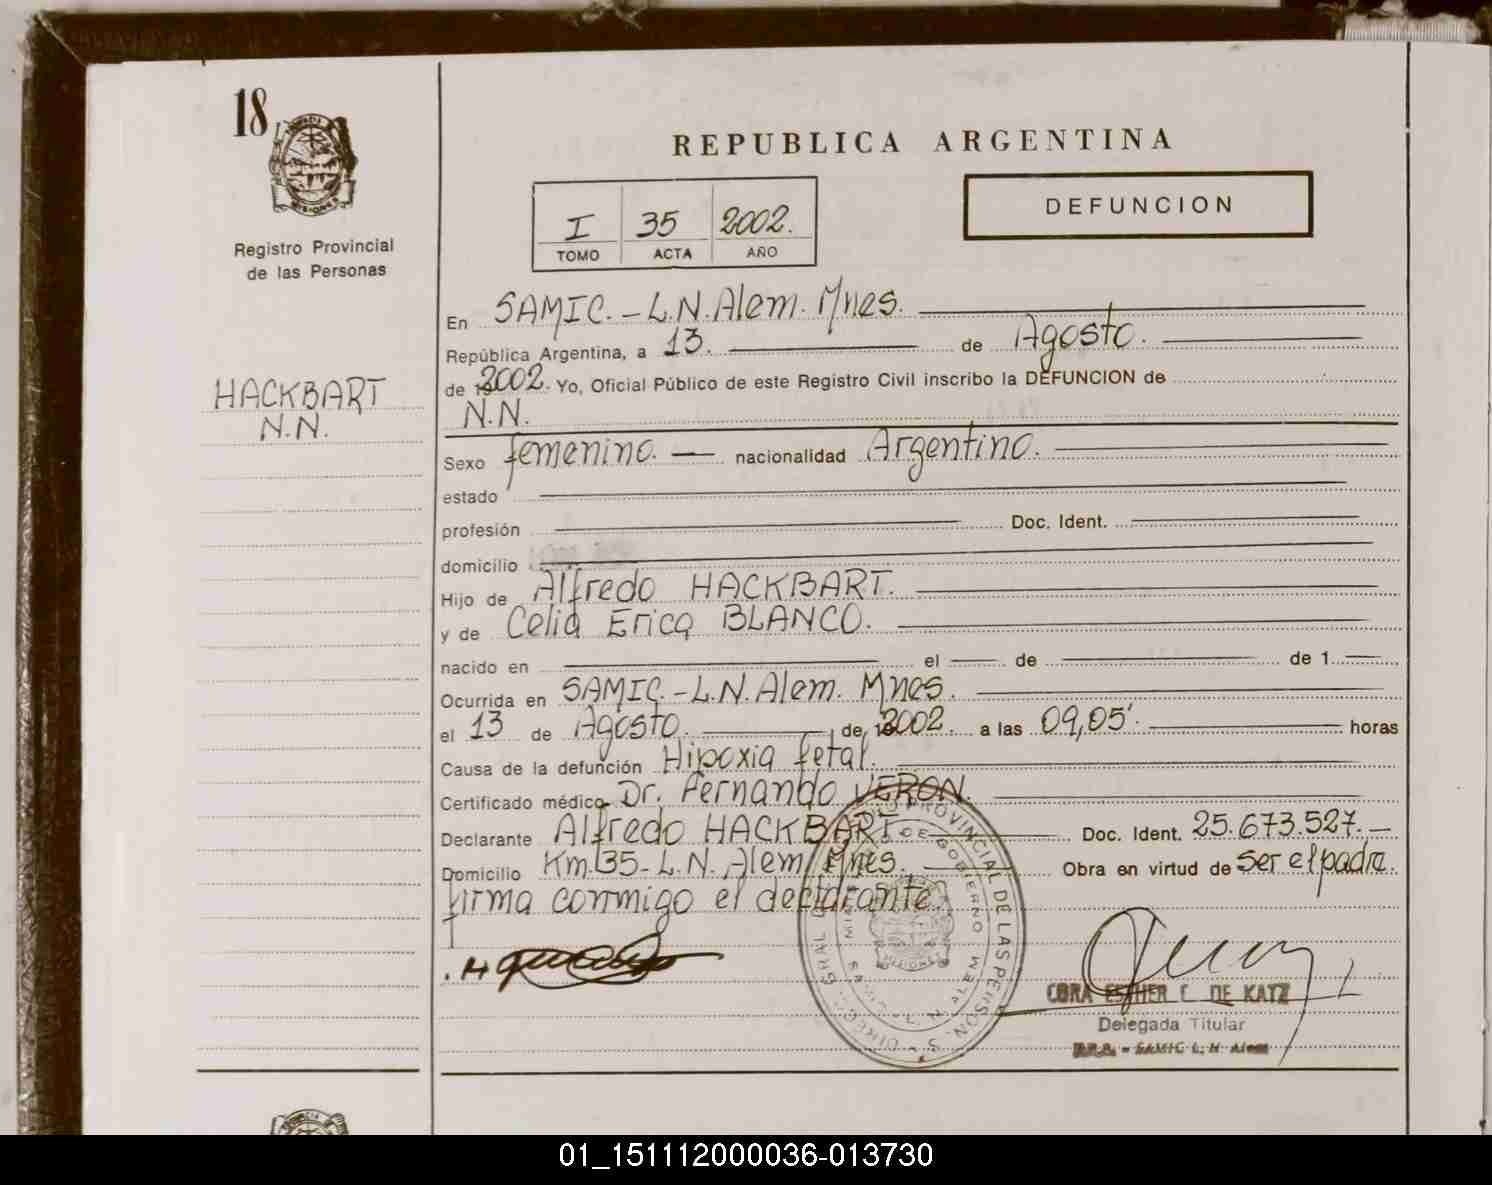 18
Registro Provincial
de las Personas
HACKBART
N.N.
REPUBLICA ARGENTINA
I 35 2002.
TOMO ACTA AÑO
DEFUNCION
En SAMIC.-L.N.Alem. Mnes.
República Argentina, a 13. de Agosto.
de 2002. Yo, Oficial Público de este Registro Civil inscribo la DEFUNCION de
N.N.
Sexo femenino. nacionalidad Argentino.
estado
profesión Doc. Ident.
domicilio
Hijo de Alfredo HACKBART.
y de Celia Erica BLANCO.
nacido en el de de 1
Ocurrida en SAMIC.-L.N.Alem. Mnes.
el 13 de Agosto. de 2002. a las 09,05'. horas
Causa de la defunción Hipoxia fetal.
Certificado médico Dr. Fernando VERON.
Declarante Alfredo HACKBART. Doc. Ident. 25.673.527.
Domicilio Km.35-L.N.Alem Mnes. Obra en virtud de ser el padre.
firma conmigo el declarante.
ESTHER C. DE KATZ
Delegada Titular
SAMIC L. N. Alem
01_151112000036-013730